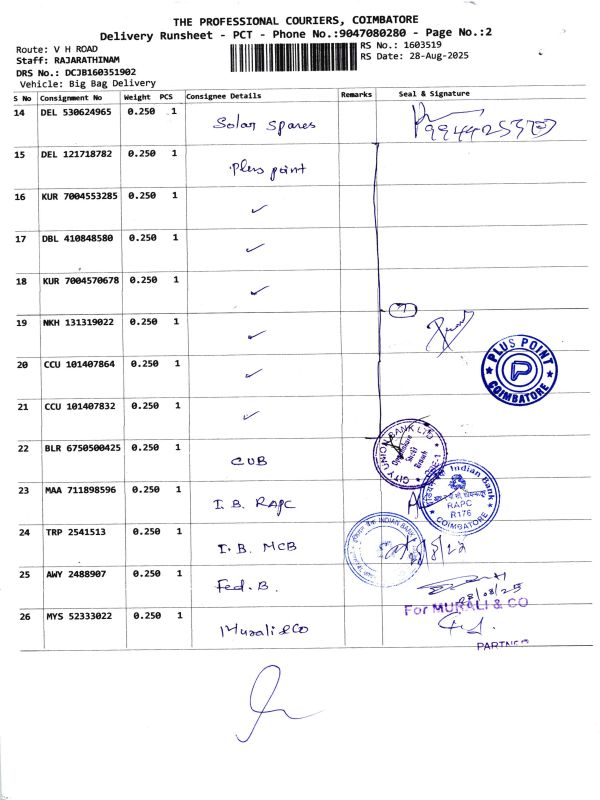 THE PROFESSIONAL COURIERS, COIMBATORE
Delivery Runsheet - PCT - Phone No.:9047080280 - Page No.:2
Route: V H ROAD
RS No.: 1603519
Staff: RAJARATHINAM
RS Date: 28-Aug-2025
DRS No.: DCJB160351902
Vehicle: Big Bag Delivery
S No Consignment No Weight PCS Consignee Details Remarks Seal & Signature
14 DEL 530624965 0.250 1 Solar Spares 9944253707
15 DEL 121718782 0.250 1 Plus point
16 KUR 7004553285 0.250 1 ✓
17 DBL 410848580 0.250 1 ✓
18 KUR 7004570678 0.250 1 ✓
19 NKH 131319022 0.250 1 ✓
20 CCU 101407864 0.250 1 ✓
PLUS POINT
P
COIMBATORE
21 CCU 101407832 0.250 1 ✓
22 BLR 6750500425 0.250 1 CUB
CITY UNION BANK LTD
23 MAA 711898596 0.250 1 I. B. RAPC
Indian Bank
RAPC
R176
COIMBATORE
24 TRP 2541513 0.250 1 I. B. MCB
INDIAN BANK
25 AWY 2488907 0.250 1 Fed. B.
28/08/25
26 MYS 52333022 0.250 1 Murali & Co
For MURALI & CO